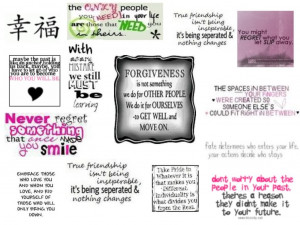 幸福
the CRAZY people
you NEED in your life
are those that NEED you
True friendship
isn't being
inseperable,
it's being seperated &
nothing changes
You might
REGRET what you
let SLIP away.
maybe the past is
With
every
MISTAKE
we still
MUST
be
learning
FORGIVENESS
is not something
we do for OTHER PEOPLE.
We do it for OURSELVES
-to GET WELL and
MOVE ON.
THE SPACES IN BETWEEN
YOUR FINGERS
WERE CREATED SO
SOMEONE ELSE'S
COULD FIT RIGHT IN BETWEEN
Never regret
something
that once made
you smile
Fate determines who enters your life,
your actions decide who stays
EMBRACE THOSE
WHO LOVE YOU
AND WHOM YOU
LOVE, AND RID
YOURSELF OF
THOSE WHO WILL
ONLY BRING YOU
DOWN.
True friendship
isn't being
inseperable,
it's being seperated &
nothing changes
Take Pride in
Whatever It is
that makes you
Different.
Individuality is
what divides you
from the Rest.
dont worry about the
people in your past,
theres a reason
they didnt make it
to your future.